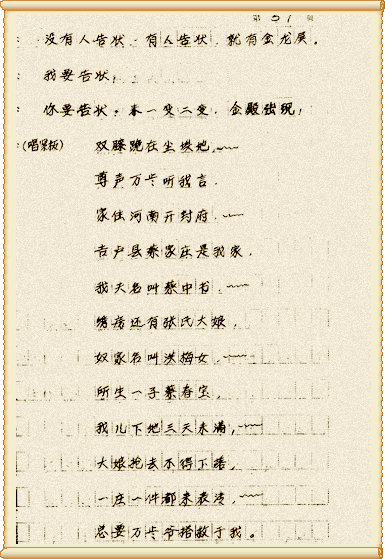 第 51 頁
: 没有人告状。有人告状，就有金龙展。
: 我要告状！
: 你要告状，来一变二变，金殿出现！
:(唱梁板) 双膝跪在尘埃地，
尊声万岁听我言。
家住河南开封府，
吉户县蔡家庄是我家。
我夫名叫蔡中书，
绣房还有张氏大娘，
奴家名叫洪梅女，
所生一子蔡春宝，
我儿下地三天未满，
大娘抱去不得下落，
一庄一件都来表清，
总要万岁爷搭救于我。